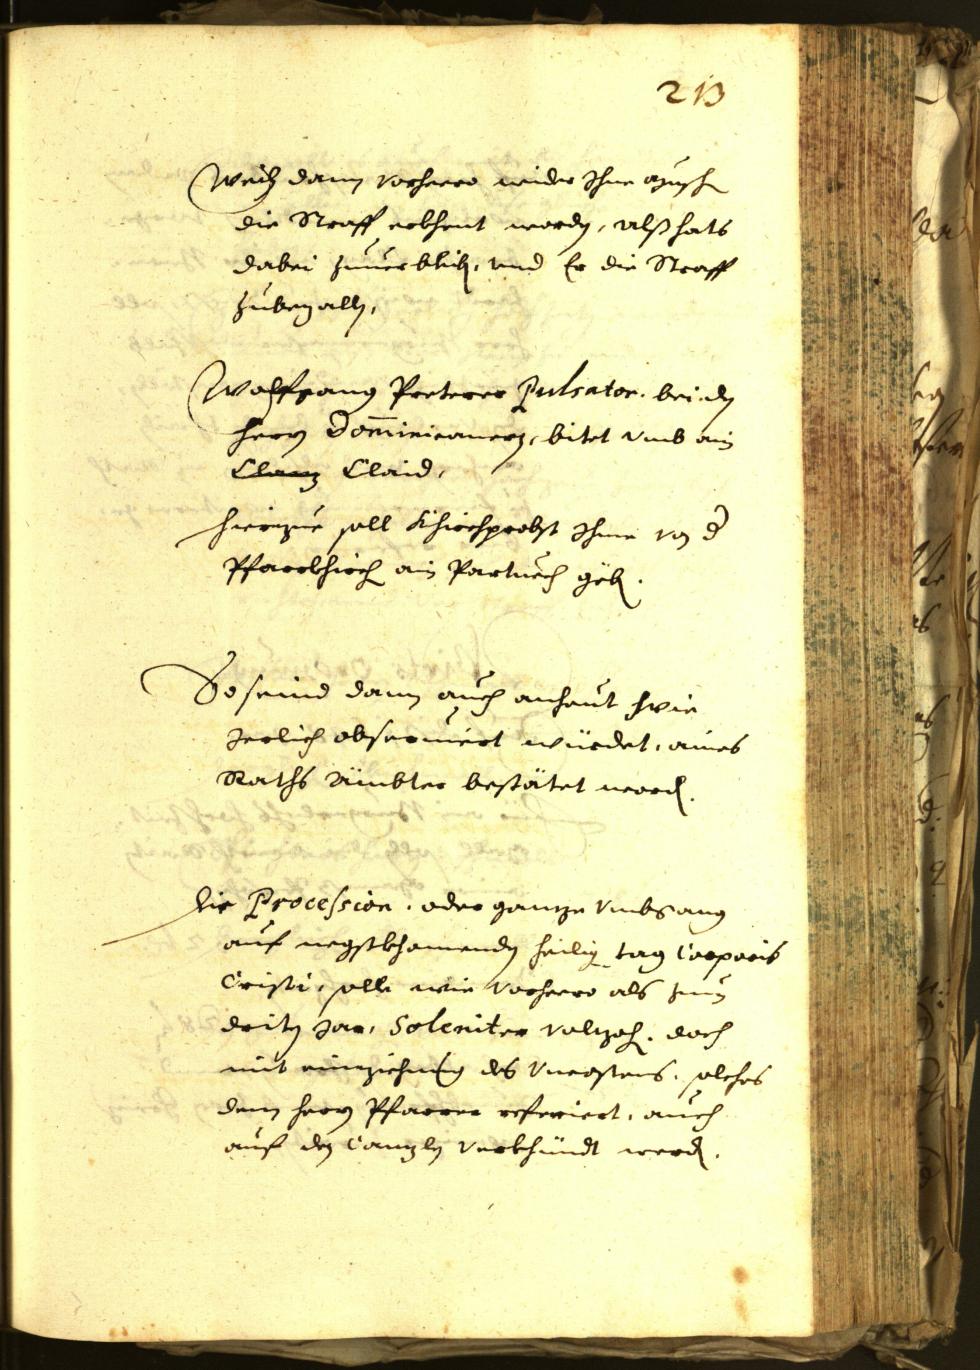 213
Weil dann vorhero wider Ihne auch
die Straff erkhent worden, alß hats
dabei zuuerbleiben, und Er die Straff
zubezallen,
Wolffgang Preterer Pulsator bei den
herrn Dominicanern, bitet vmb ain
Claid,
hierzue soll Khirchprobst Ihme von der
Pfarrkhirch ain Partuech geben.
So seind dann auch anheut wie
Jerlich obseruiert würdet, aines
Raths Ämbter bestätet worden.
Die Procession oder gannze Vmbgang
auf negstkhomenden heilig tag Corporis
Cristi, solle wie vorhero als zum
driten Jar, Soleniter volzogen, doch
mit einziehung des Vncostens, solches
dem herrn Pfarrer referiert, auch
auf der Canzln verkhündt werden.